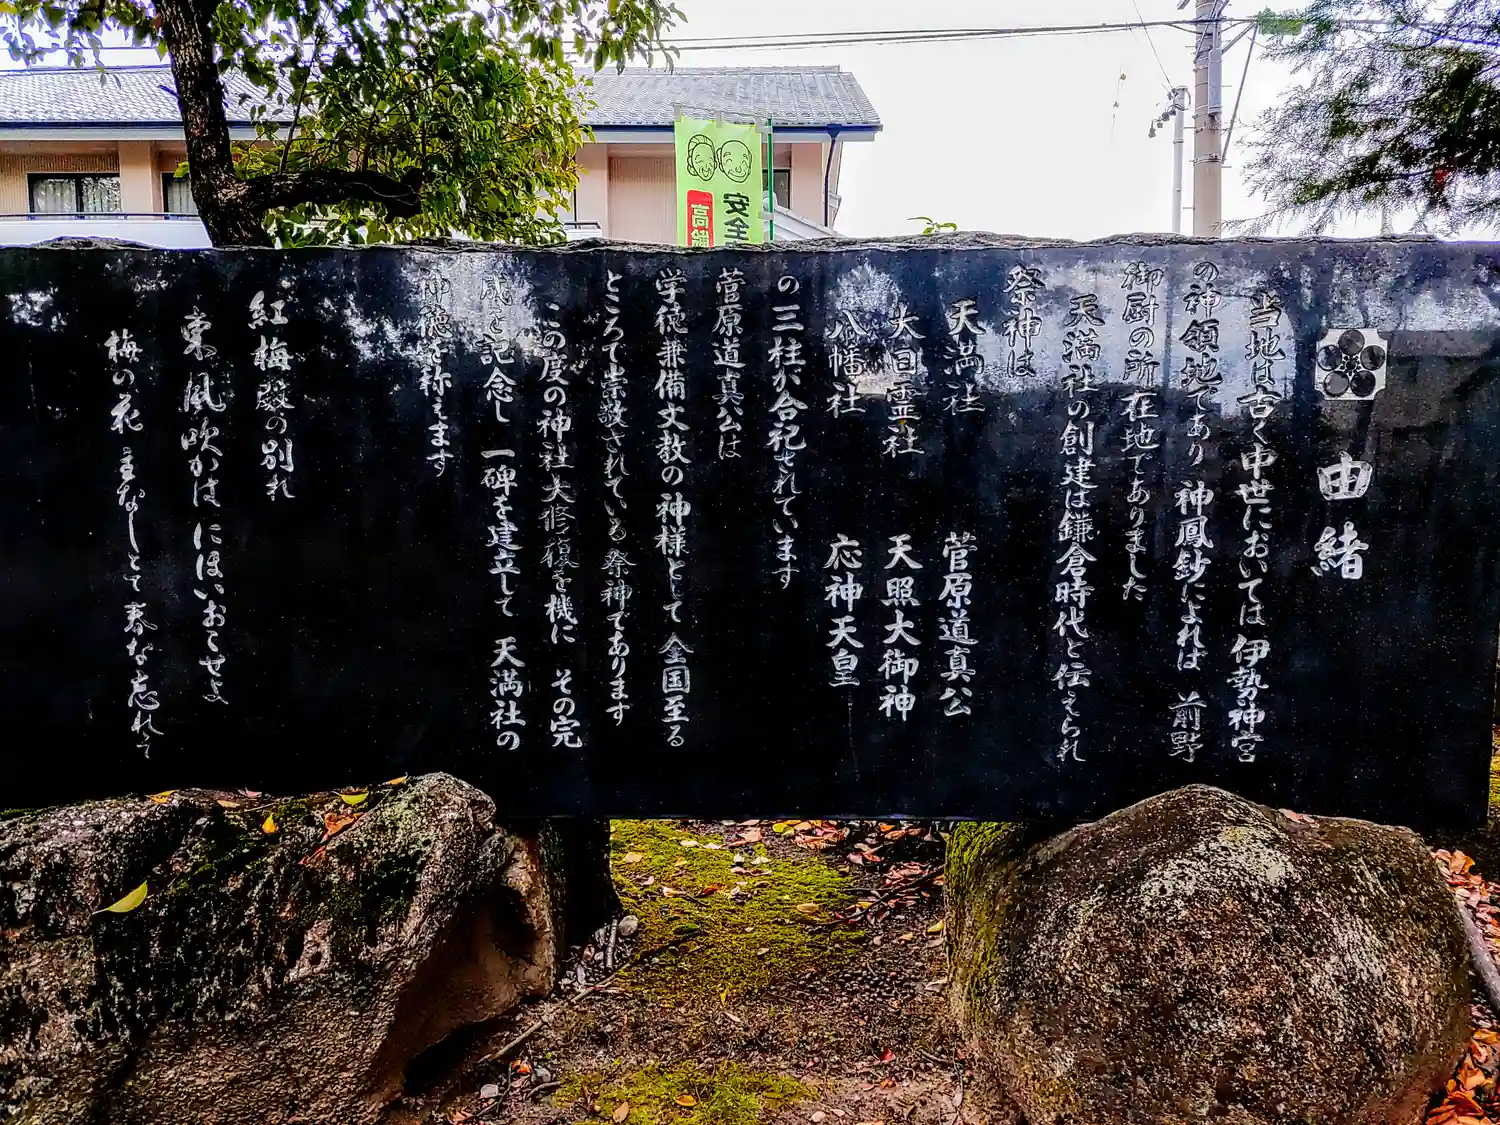 由緒
当地は古く中世においては伊勢神宮
の神領地であり 神鳳鈔によれば 前野
御厨の所在地でありました
天満社の創建は鎌倉時代と伝えられ
祭神は
天満社 菅原道真公
大日霊社 天照大御神
八幡社 応神天皇
の三柱が合祀されています
菅原道真公は
学徳兼備文教の神様として 全国至る
ところで崇敬されている祭神であります
この度の神社大修復を機に その完
成を記念し 一碑を建立して 天満社の
神徳を称えます
紅梅殿の別れ
東風吹かば にほいおこせよ
梅の花 主なしとて 春な忘れそ
安全
高齢